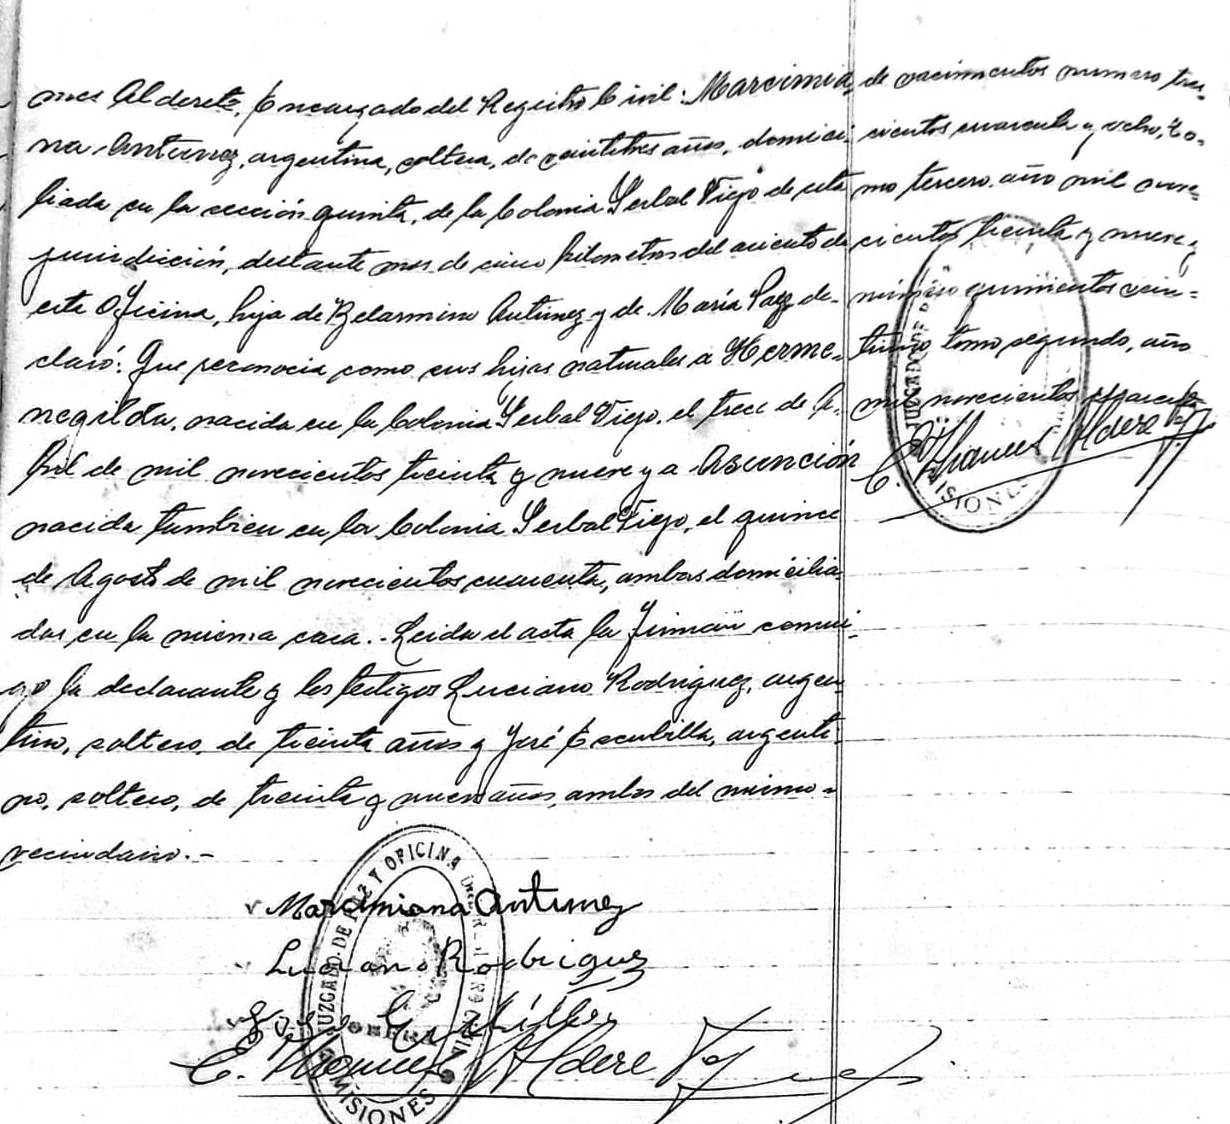 mes Alderete, Encargado del Registro Civil: Marcimia,
na Antunez, argentina, soltera, de veintitres años, domici-
liada en la sección quinta, de la Colonia Yerbal Viejo de esta
jurisdicción, distante mas de cinco kilometros del asiento de
esta Oficina, hija de Belarmino Antunez y de María Paez de-
claró: Que reconocia como sus hijas naturales a Herme-
negilda, nacida en la Colonia Yerbal Viejo, el trece de A-
bril de mil novecientos treinta y nueve y a Asunción
nacida tambien en la Colonia Yerbal Viejo, el quince
de Agosto de mil novecientos cuarenta, ambas domicilia-
das en la misma casa.- Leida el acta la firman conmi-
go la declarante y los testigos Luciano Rodriguez, argen-
tino, soltero, de treinta años y José Escubilla, argenti-
no, soltero, de treinta y nueve años, ambos del mismo-
vecindario.-
de nacimientos numero tres-
cientos cuarenta y ocho, to-
mo tercero año mil nove-
cientos treinta y nueve y
número quinientos vein-
tiuno tomo segundo, año
mil novecientos cuarenta
JUZGADO DE
MISIONES
E. Thames Alderete
Marcimiana Antunez
Luciano Rodriguez
José
E. Thames Alderete
JUZGADO DE PAZ Y OFICINA
OBERA
MISIONES